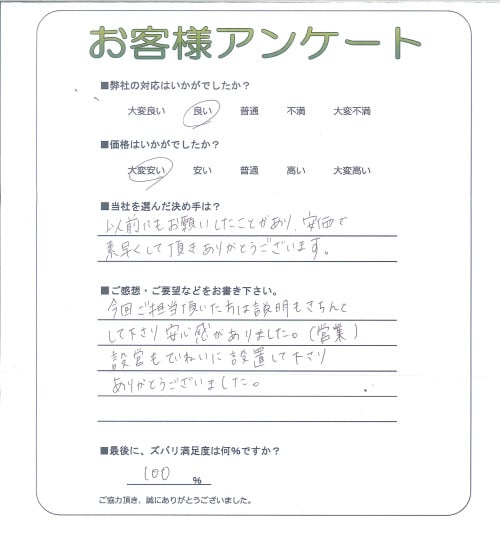 お客様アンケート
■弊社の対応はいかがでしたか？
大変良い 良い 普通 不満 大変不満
■価格はいかがでしたか？
大変安い 安い 普通 高い 大変高い
■当社を選んだ決め手は？
以前にもお願いしたことがあり、安価で
素早くして頂きありがとうございます。
■ご感想・ご要望などをお書き下さい。
今回ご担当頂いた方は説明もきちんと
して下さり安心感がありました。(営業)
設営もていねいに設置して下さり
ありがとうございました。
■最後に、ズバリ満足度は何%ですか？
100 %
ご協力頂き、誠にありがとうございました。